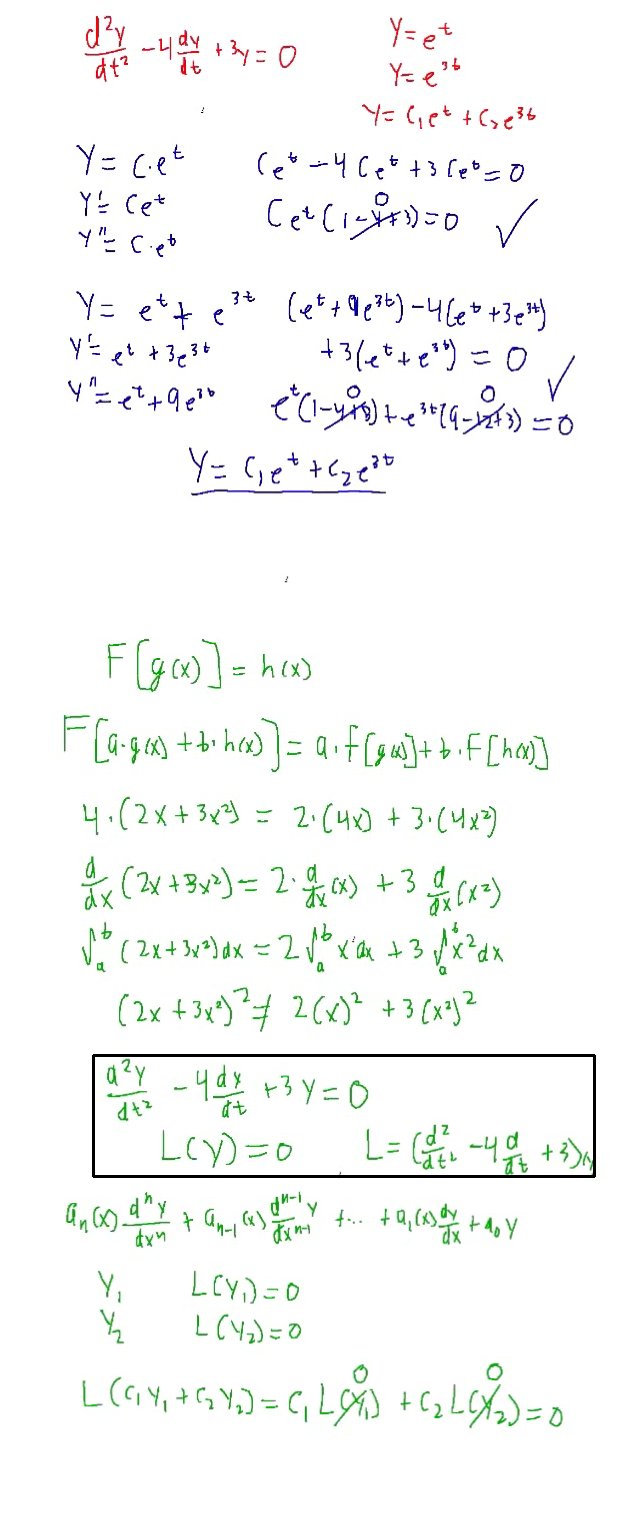 d²y/dt² - 4 dy/dt + 3y = 0
y = e^t
y = e^3t
y = C₁e^t + C₂e^3t
y = C·e^t
y' = Ce^t
y'' = C·e^t
Ce^t - 4Ce^t + 3Ce^t = 0
Ce^t(1-4+3) = 0 ✓
0
y = e^t + e^3t
y' = e^t + 3e^3t
y'' = e^t + 9e^3t
(e^t + 9e^3t) - 4(e^t + 3e^3t)
+3(e^t + e^3t) = 0 ✓
0 0
e^t(1-4+3) + e^3t(9-12+3) = 0
y = C₁e^t + C₂e^3t
F[g(x)] = h(x)
F[a·g(x) + b·h(x)] = a·f[g(x)] + b·F[h(x)]
4·(2x + 3x²) = 2·(4x) + 3·(4x²)
d/dx (2x + 3x²) = 2·d/dx(x) + 3 d/dx(x²)
∫_a^b (2x + 3x²)dx = 2∫_a^b x dx + 3∫_a^b x² dx
(2x + 3x²)² ≠ 2(x)² + 3(x²)²
d²y/dt² - 4 dy/dt + 3y = 0
L(y) = 0 L = (d²/dt² - 4 d/dt + 3)y
a_n(x) d^n y/dx^n + a_{n-1}(x) d^{n-1}y/dx^{n-1} + ... + a₁(x) dy/dx + a₀y
y₁ L(y₁) = 0
y₂ L(y₂) = 0
0 0
L(c₁y₁ + c₂y₂) = c₁L(y₁) + c₂L(y₂) = 0